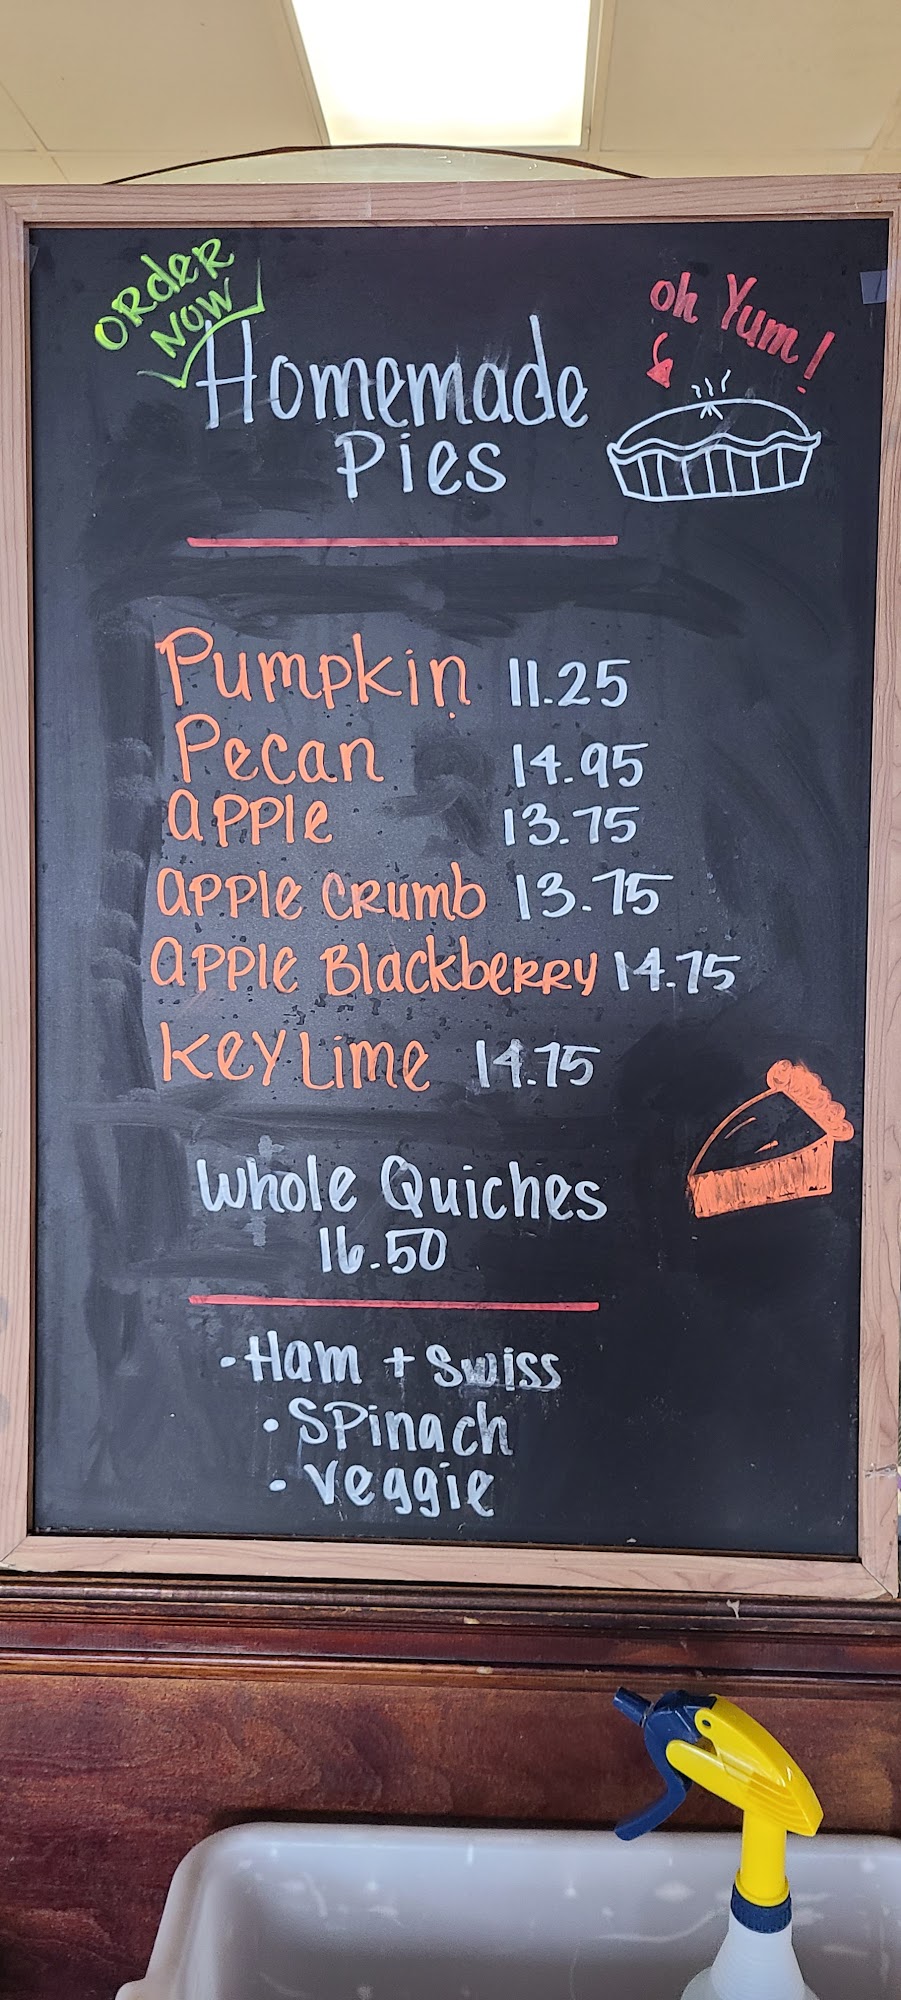 ORdeR
NOW
oh Yum!
Homemade
Pies
Pumpkin 11.25
Pecan 14.95
aPPle 13.75
aPPle CRumb 13.75
aPPle BlackbeRRY 14.75
Key Lime 14.75
Whole Quiches
16.50
• Ham + Swiss
• SPinach
• Veggie